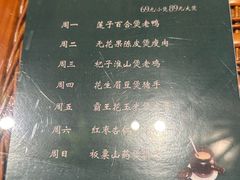 69元小煲 89元大煲
周一 莲子百合煲老鸭
周二 无花果陈皮煲瘦肉
周三 杞子淮山煲老鸡
周四 花生眉豆煲猪手
周五 霸王花玉米煲
周六 红枣杏仁
周日 板栗山药